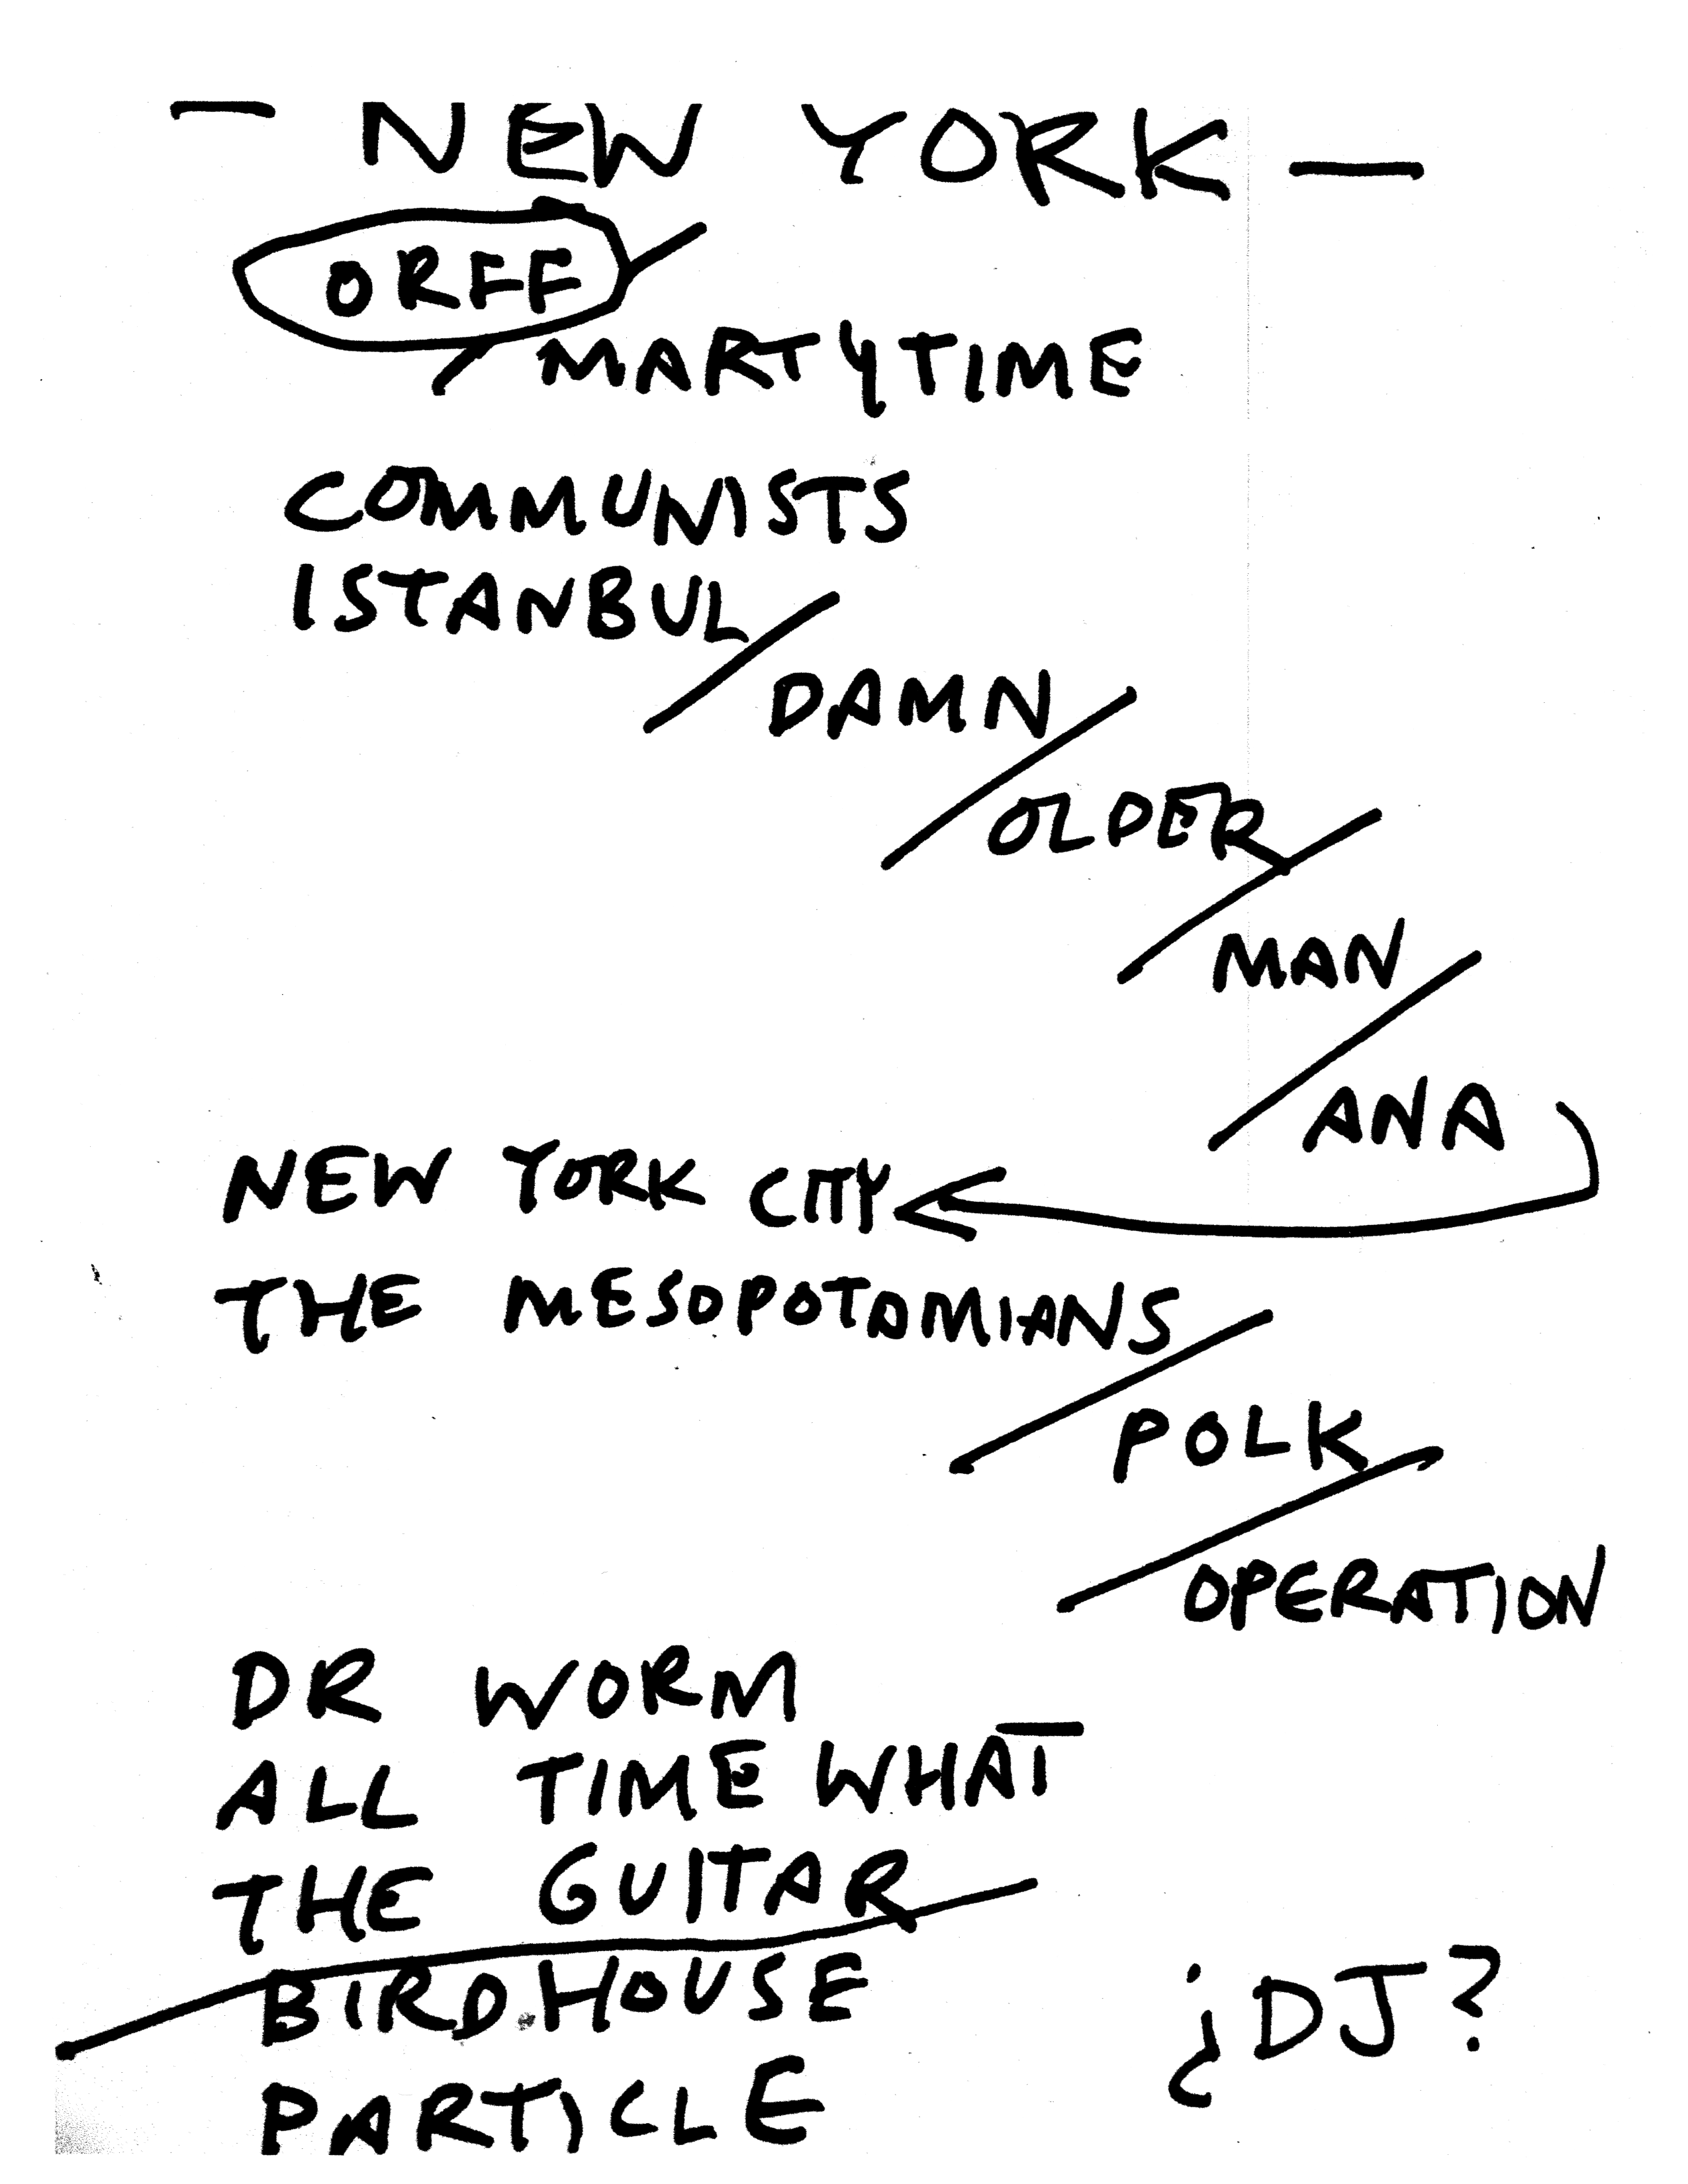 — NEW YORK —
ORFF
MARTYTIME
COMMUNISTS
ISTANBUL
DAMN
OLDER
MAN
ANA
NEW YORK CITY
THE MESOPOTAMIANS
POLK
OPERATION
DR WORM
ALL TIME WHAT
THE GUITAR
BIRDHOUSE
¿DJ?
PARTICLE